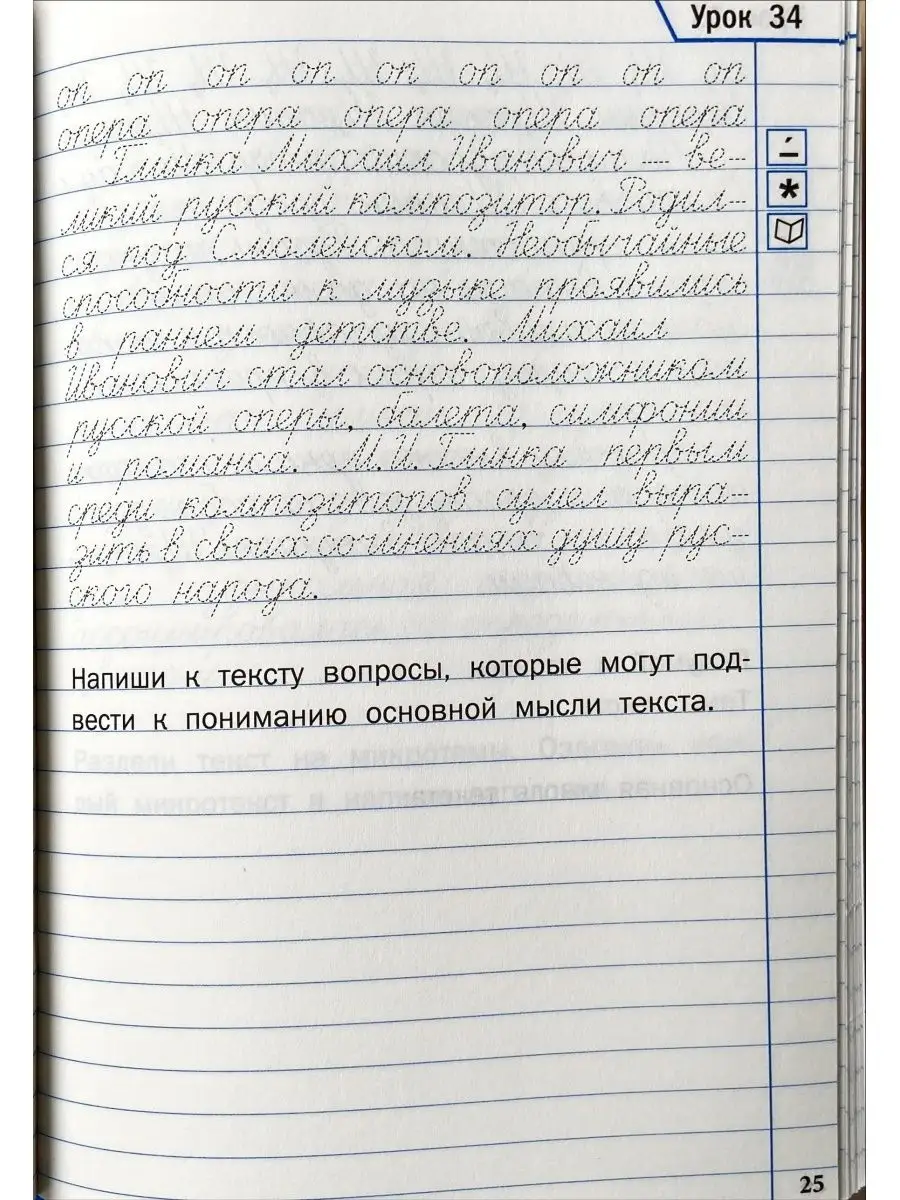 Урок 34
оп оп оп оп оп оп оп оп оп
опера опера опера опера опера
Глинка Михаил Иванович — ве-
ликий русский композитор. Родил-
ся под Смоленском. Необычайные
способности к музыке проявились
в раннем детстве. Михаил
Иванович стал основоположником
русской оперы, балета, симфонии
и романса. М.И.Глинка первым
среди композиторов сумел выра-
зить в своих сочинениях душу рус-
ского народа.
Напиши к тексту вопросы, которые могут под-
вести к пониманию основной мысли текста.
25